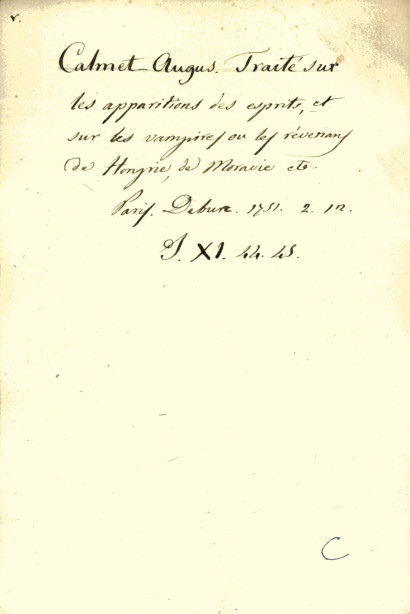 v.
Calmet Augus. Traité sur
les apparitions des esprits, et
sur les vampires ou les révenans
de Hongrie, de Moravie etc.
Paris. Debure. 1751. 2. 12.
XI. 44. 45.
C